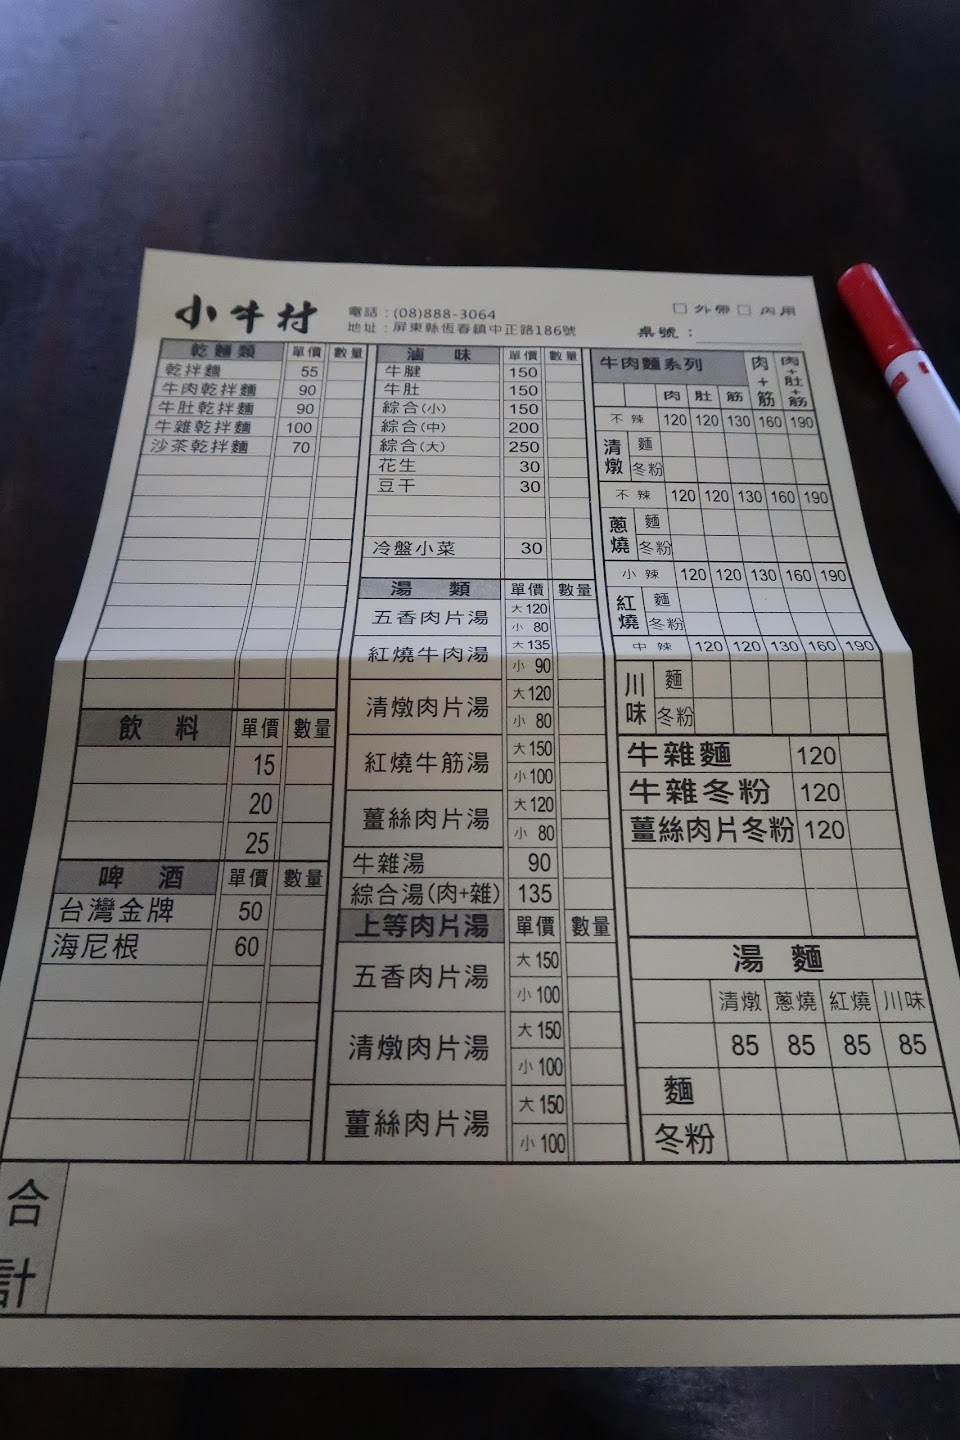 小牛村
電話：(08)888-3064
地址：屏東縣恆春鎮中正路186號
□ 外帶 □ 內用
桌號：
乾麵類 單價 數量
乾拌麵 55
牛肉乾拌麵 90
牛肚乾拌麵 90
牛雜乾拌麵 100
沙茶乾拌麵 70
飲料 單價 數量
15
20
25
啤酒 單價 數量
台灣金牌 50
海尼根 60
滷味 單價 數量
牛腱 150
牛肚 150
綜合(小) 150
綜合(中) 200
綜合(大) 250
花生 30
豆干 30
冷盤小菜 30
湯類 單價 數量
五香肉片湯 大120
小 80
紅燒牛肉湯 大135
小 90
清燉肉片湯 大120
小 80
紅燒牛筋湯 大150
小100
薑絲肉片湯 大120
小 80
牛雜湯 90
綜合湯(肉+雜) 135
上等肉片湯 單價 數量
五香肉片湯 大150
小100
清燉肉片湯 大150
小100
薑絲肉片湯 大150
小100
牛肉麵系列
肉 肚 筋 肉+筋 肉+肚+筋
不辣 120 120 130 160 190
清燉 麵
冬粉
不辣 120 120 130 160 190
蔥燒 麵
冬粉
小辣 120 120 130 160 190
紅燒 麵
冬粉
中辣 120 120 130 160 190
川味 麵
冬粉
牛雜麵 120
牛雜冬粉 120
薑絲肉片冬粉 120
湯麵
清燉 蔥燒 紅燒 川味
85 85 85 85
麵
冬粉
合計